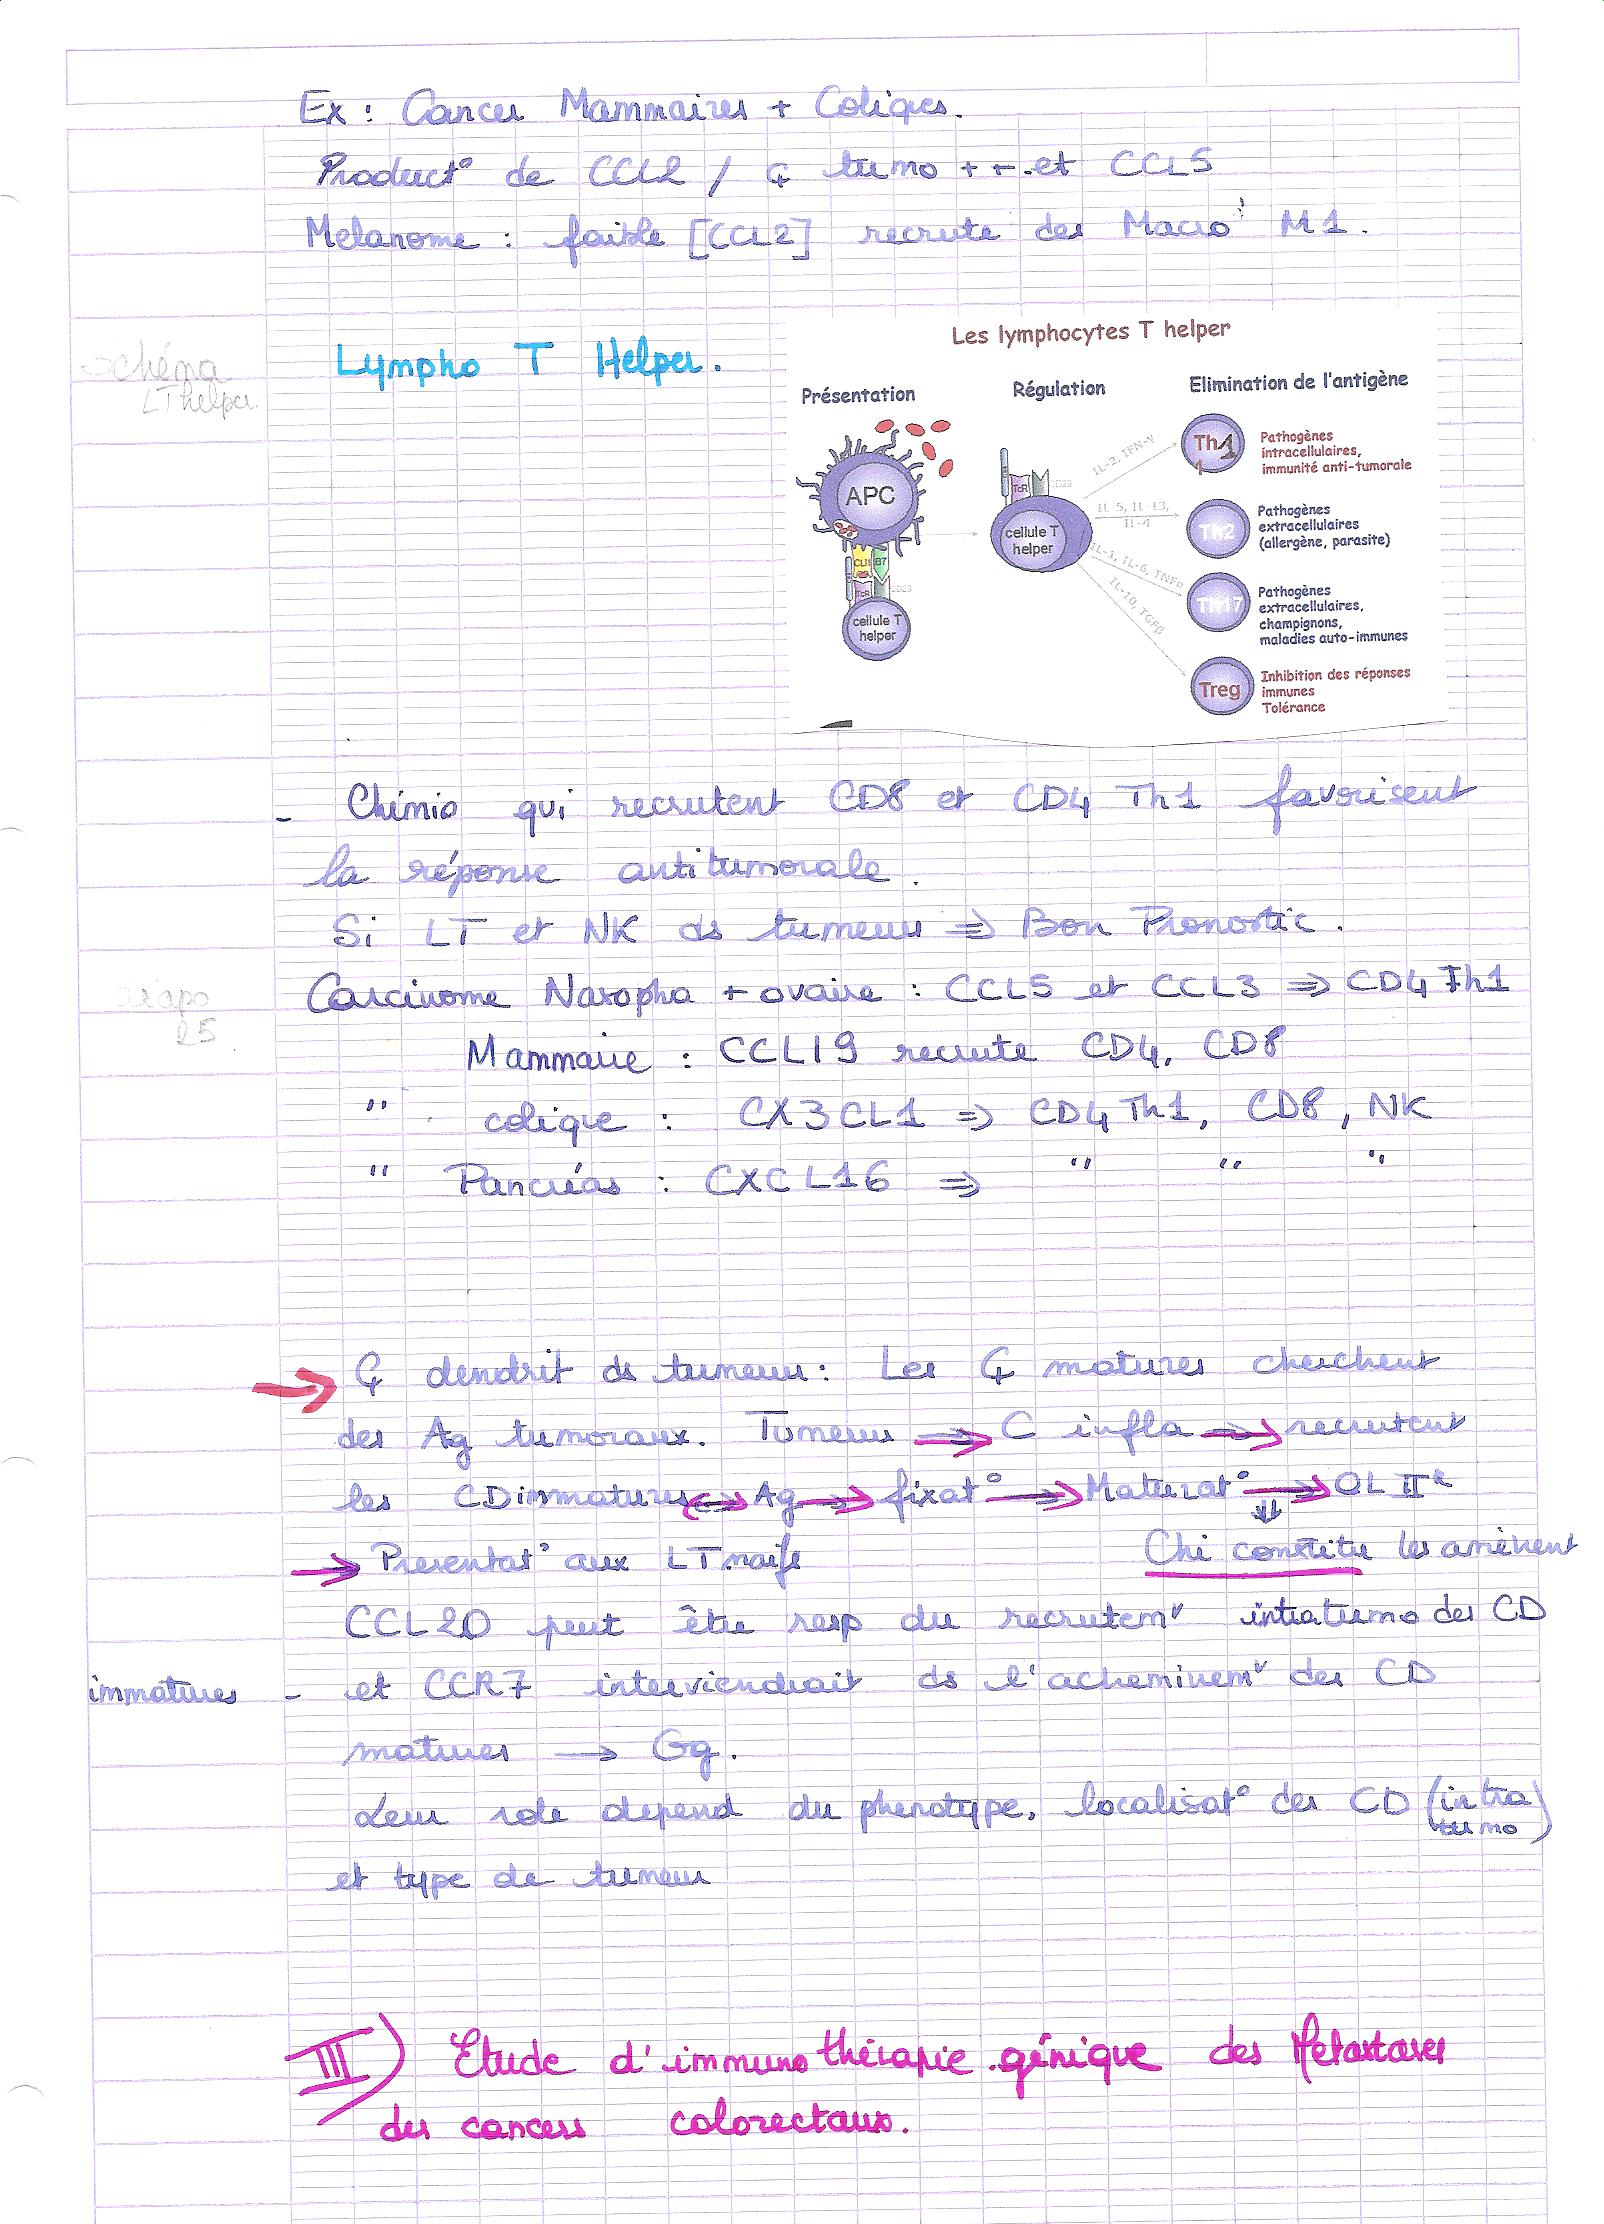 Ex : Cancer Mammaires + Coliques.
Product° de CCL2 / ₵ tumo ++ et CCL5
Melanome : faible [CCL2] recrute des Macro' M1.
Schéma
LT helper.
Lympho T Helper.
Les lymphocytes T helper
Présentation
Régulation
Elimination de l'antigène
APC
CLII B7
TcR CD28
cellule T
helper
TcR CD28
cellule T
helper
IL-2, IFN-γ
IL-5, IL-13,
IL-4
IL-1, IL-6, TNFα
IL-10, TGFβ
Th1
1
Pathogènes
intracellulaires,
immunité anti-tumorale
Th2
Pathogènes
extracellulaires
(allergène, parasite)
Th17
Pathogènes
extracellulaires,
champignons,
maladies auto-immunes
Treg
Inhibition des réponses
immunes
Tolérance
- Chimio qui recrutent CD8 et CD4 Th1 favorisent
la réponse antitumorale.
Si LT et NK ds tumeur ⇒ Bon Pronostic.
Diapo
25
Carcinome Nasopha + ovaire : CCL5 et CCL3 ⇒ CD4 Th1
Mammaire : CCL19 recrute CD4, CD8
" colique : CX3CL1 ⇒ CD4 Th1, CD8, NK
" Pancréas : CXCL16 ⇒ " " "
→ ₵ dendrit ds tumeur : Les ₵ matures cherchent
des Ag tumoraux. Tumeur → C infla → recrutent
les CD immatures ↔ Ag → fixat° → Maturat° → OL IIR
⇓
→ Presentat° aux LT naifs Chi constitu les amènent
CCL20 peut être resp du recrutemt intratumo des CD
immatures - et CCR7 interviendrait ds l'acheminemt des CD
matures → Gg.
Leur role depend du phenotype, localisat° des CD (intra
tumo)
et type de tumeur
III) Etude d'immunothérapie génique des Metastases
des cancers colorectaux.